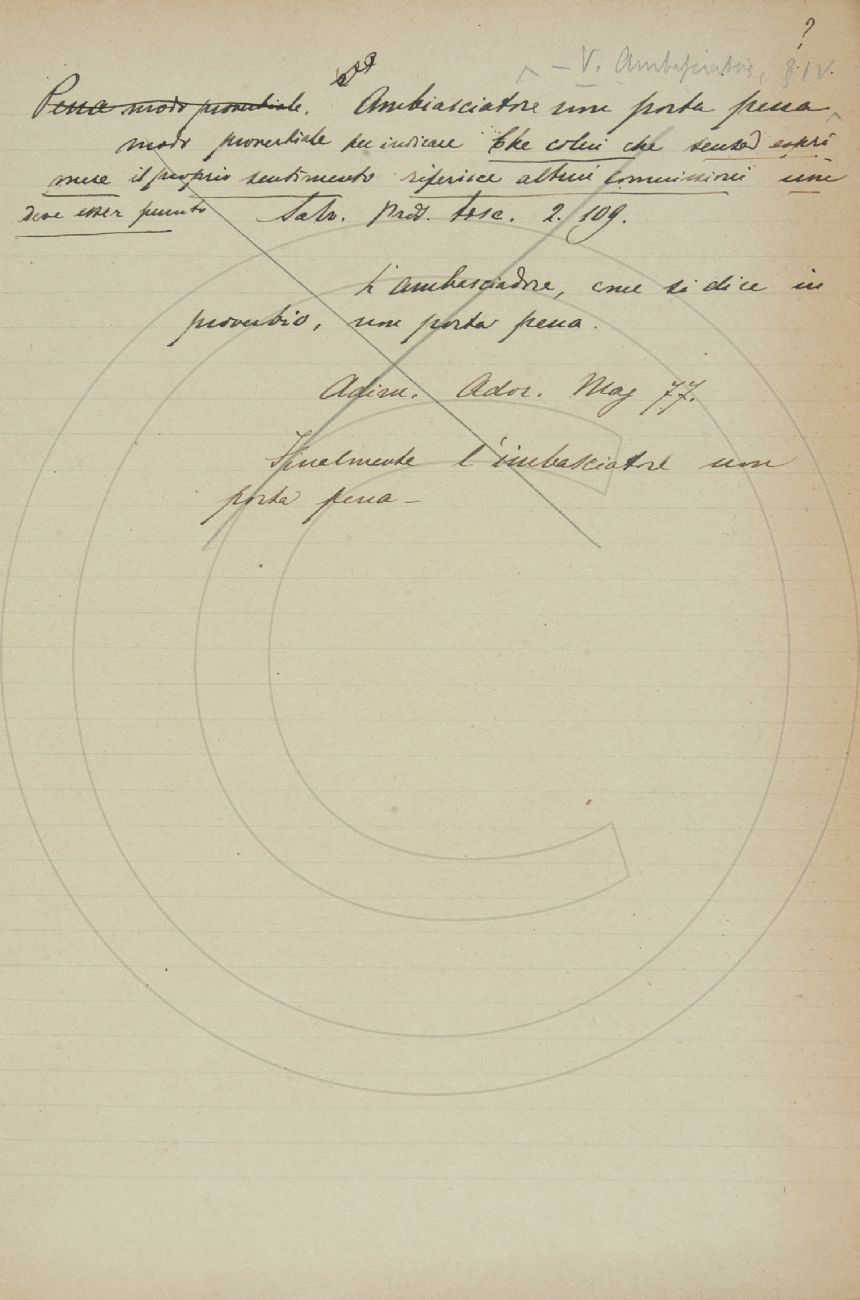 ?
— V. Ambasciatore, § IV.
Pena modo proverbiale. Ambiasciatore non porta pena
modo proverbiale per indicare Che colui che senza espri
mere il proprio sentimento riferisce altrui commissioni non
deve esser punito Salv. Pros. tosc. 2. 109.
L'ambasciadore, come si dice in
proverbio, non porta pena.
Adim. Ador. Mag 77.
Finalmente l'imbasciatore non
porta pena —